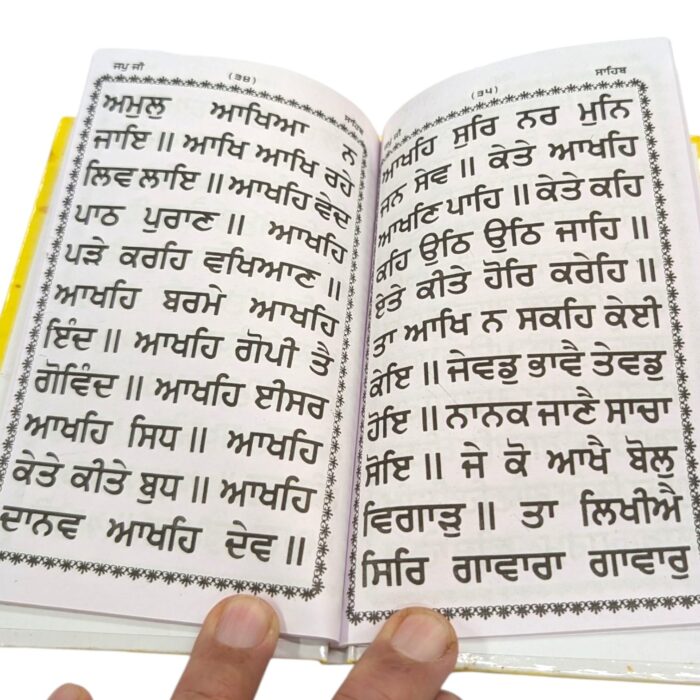 ਜਪੁ ਜੀ (੩੪) ਸਾਹਿਬ
ਅਮੁਲੁ ਆਖਿਆ ਨ
ਜਾਇ ॥ ਆਖਿ ਆਖਿ ਰਹੇ
ਲਿਵ ਲਾਇ ॥ ਆਖਹਿ ਵੇਦ
ਪਾਠ ਪੁਰਾਣ ॥ ਆਖਹਿ
ਪੜੇ ਕਰਹਿ ਵਖਿਆਣ ॥
ਆਖਹਿ ਬਰਮੇ ਆਖਹਿ
ਇੰਦ ॥ ਆਖਹਿ ਗੋਪੀ ਤੈ
ਗੋਵਿੰਦ ॥ ਆਖਹਿ ਈਸਰ
ਆਖਹਿ ਸਿਧ ॥ ਆਖਹਿ
ਕੇਤੇ ਕੀਤੇ ਬੁਧ ॥ ਆਖਹਿ
ਦਾਨਵ ਆਖਹਿ ਦੇਵ ॥
ਜਪੁ ਜੀ (੩੫) ਸਾਹਿਬ
ਆਖਹਿ ਸੁਰਿ ਨਰ ਮੁਨਿ
ਜਨ ਸੇਵ ॥ ਕੇਤੇ ਆਖਹਿ
ਆਖਣਿ ਪਾਹਿ ॥ ਕੇਤੇ ਕਹਿ
ਕਹਿ ਉਠਿ ਉਠਿ ਜਾਹਿ ॥
ਏਤੇ ਕੀਤੇ ਹੋਰਿ ਕਰੇਹਿ ॥
ਤਾ ਆਖਿ ਨ ਸਕਹਿ ਕੇਈ
ਕੇਇ ॥ ਜੇਵਡੁ ਭਾਵੈ ਤੇਵਡੁ
ਹੋਇ ॥ ਨਾਨਕ ਜਾਣੈ ਸਾਚਾ
ਸੋਇ ॥ ਜੇ ਕੋ ਆਖੈ ਬੋਲੁ
ਵਿਗਾੜੁ ॥ ਤਾ ਲਿਖੀਐ
ਸਿਰਿ ਗਾਵਾਰਾ ਗਾਵਾਰੁ